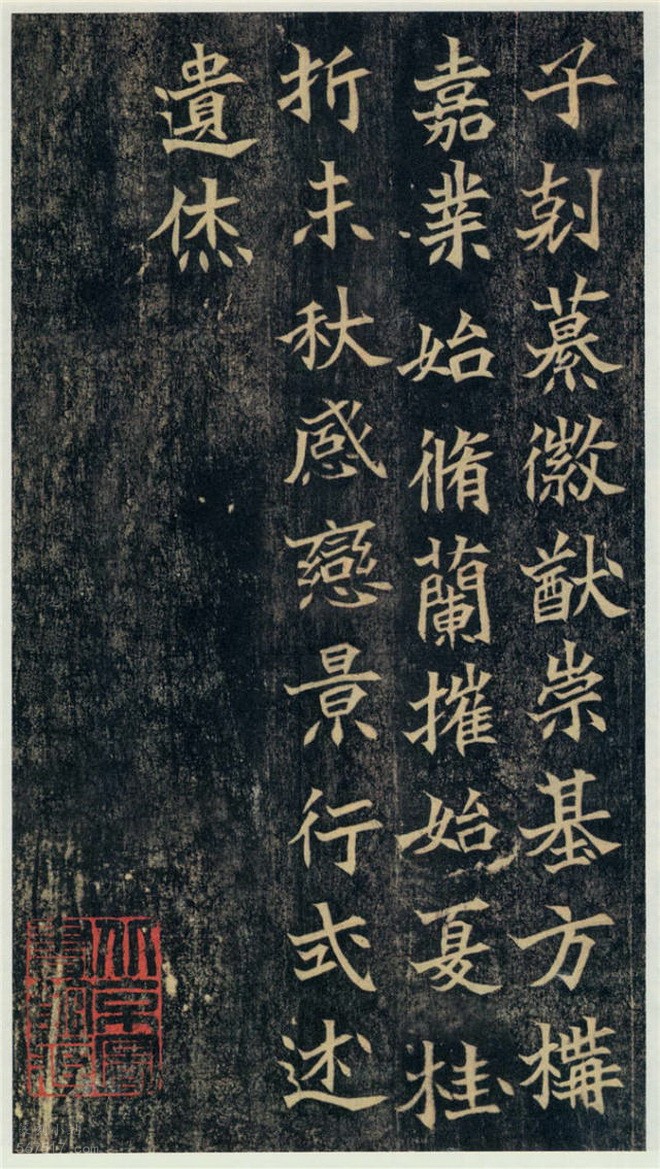 子剋慕徽猷崇基方構
嘉業始脩蘭摧始夏桂
折未秋感戀景行式述
遺烋